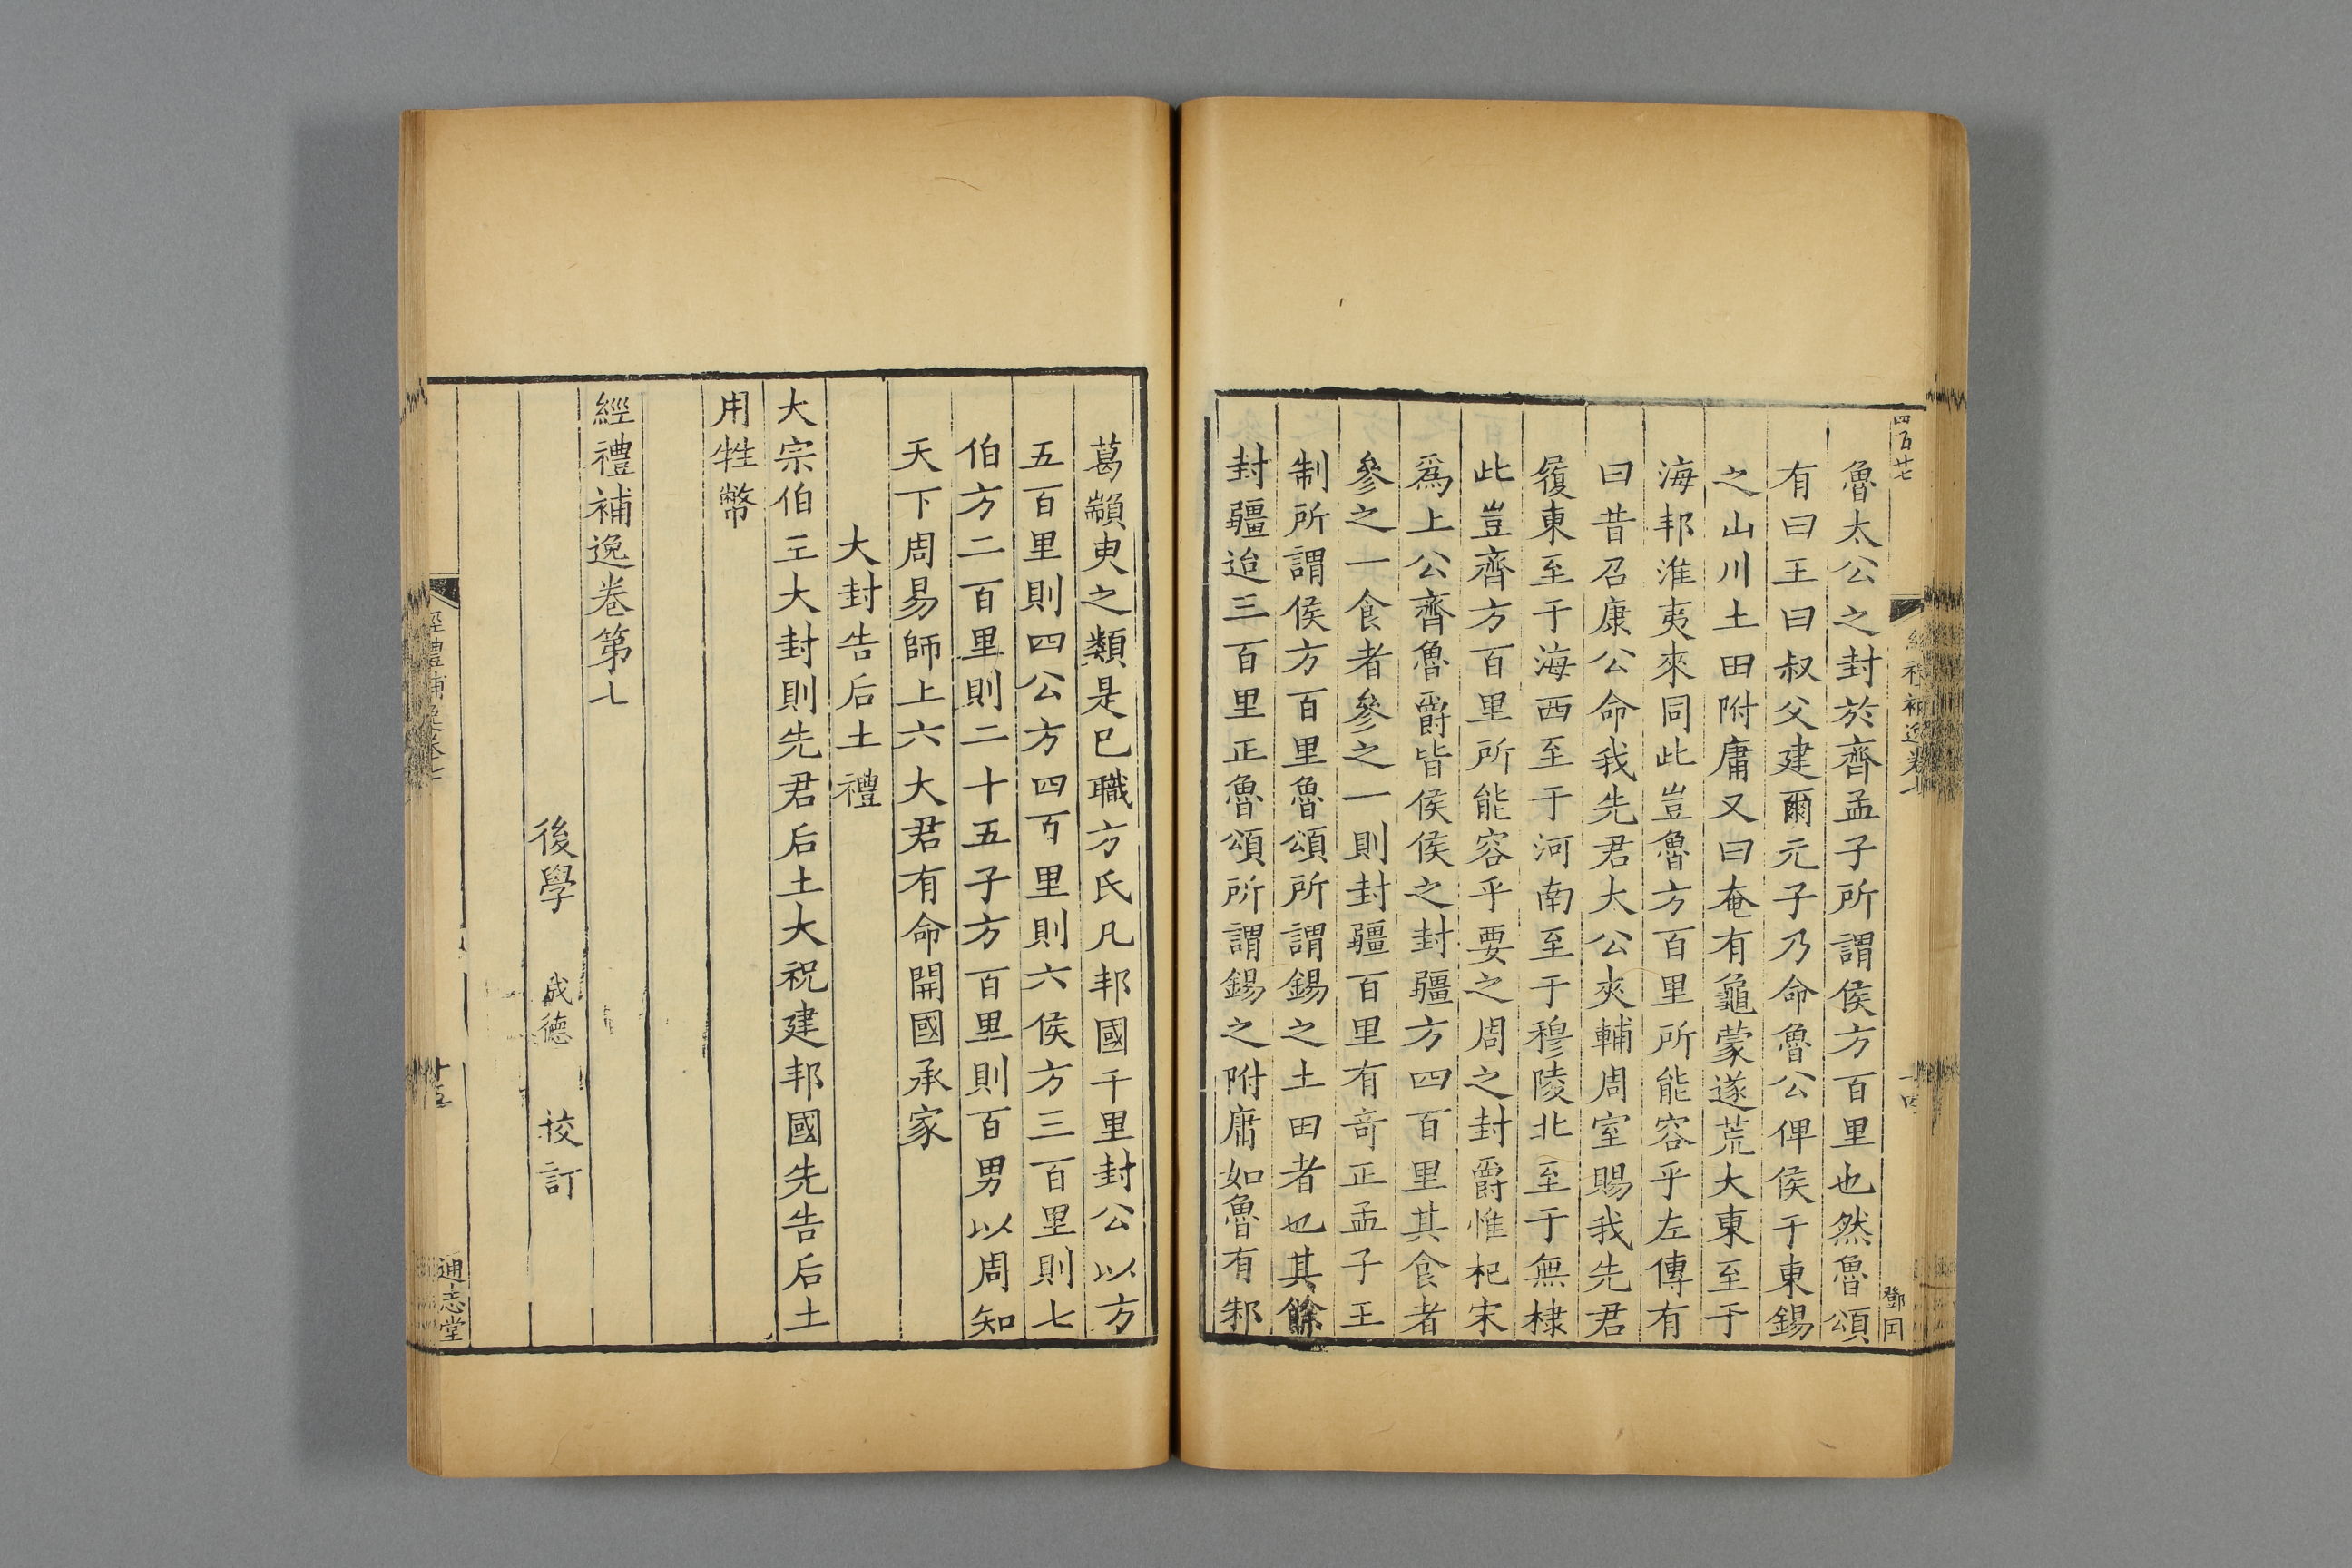 四百廿七
魯太公之封於齊孟子所謂侯方百里也然魯頌
有曰王曰叔父建爾元子乃命魯公俾侯于東錫
之山川土田附庸又曰奄有龜蒙遂荒大東至于
海邦淮夷來同此豈魯方百里所能容乎左傳有
曰昔召康公命我先君大公夾輔周室賜我先君
履東至于海西至于河南至于穆陵北至于無棣
此豈齊方百里所能容乎要之周之封爵惟杞宋
爲上公齊魯爵皆侯侯之封疆方四百里其食者
參之一食者參之一則封疆百里有奇正孟子王
制所謂侯方百里魯頌所謂錫之土田者也其餘
封疆迨三百里正魯頌所謂錫之附庸如魯有邾
葛顓臾之類是巳職方氏凡邦國千里封公以方
五百里則四公方四百里則六侯方三百里則七
伯方二百里則二十五子方百里則百男以周知
天下周易師上六大君有命開國承家
大封告后土禮
大宗伯王大封則先君后土大祝建邦國先告后土
用牲幣
經禮補逸卷第七
後學 成德 校訂
經禮補逸卷七
十五
通志堂